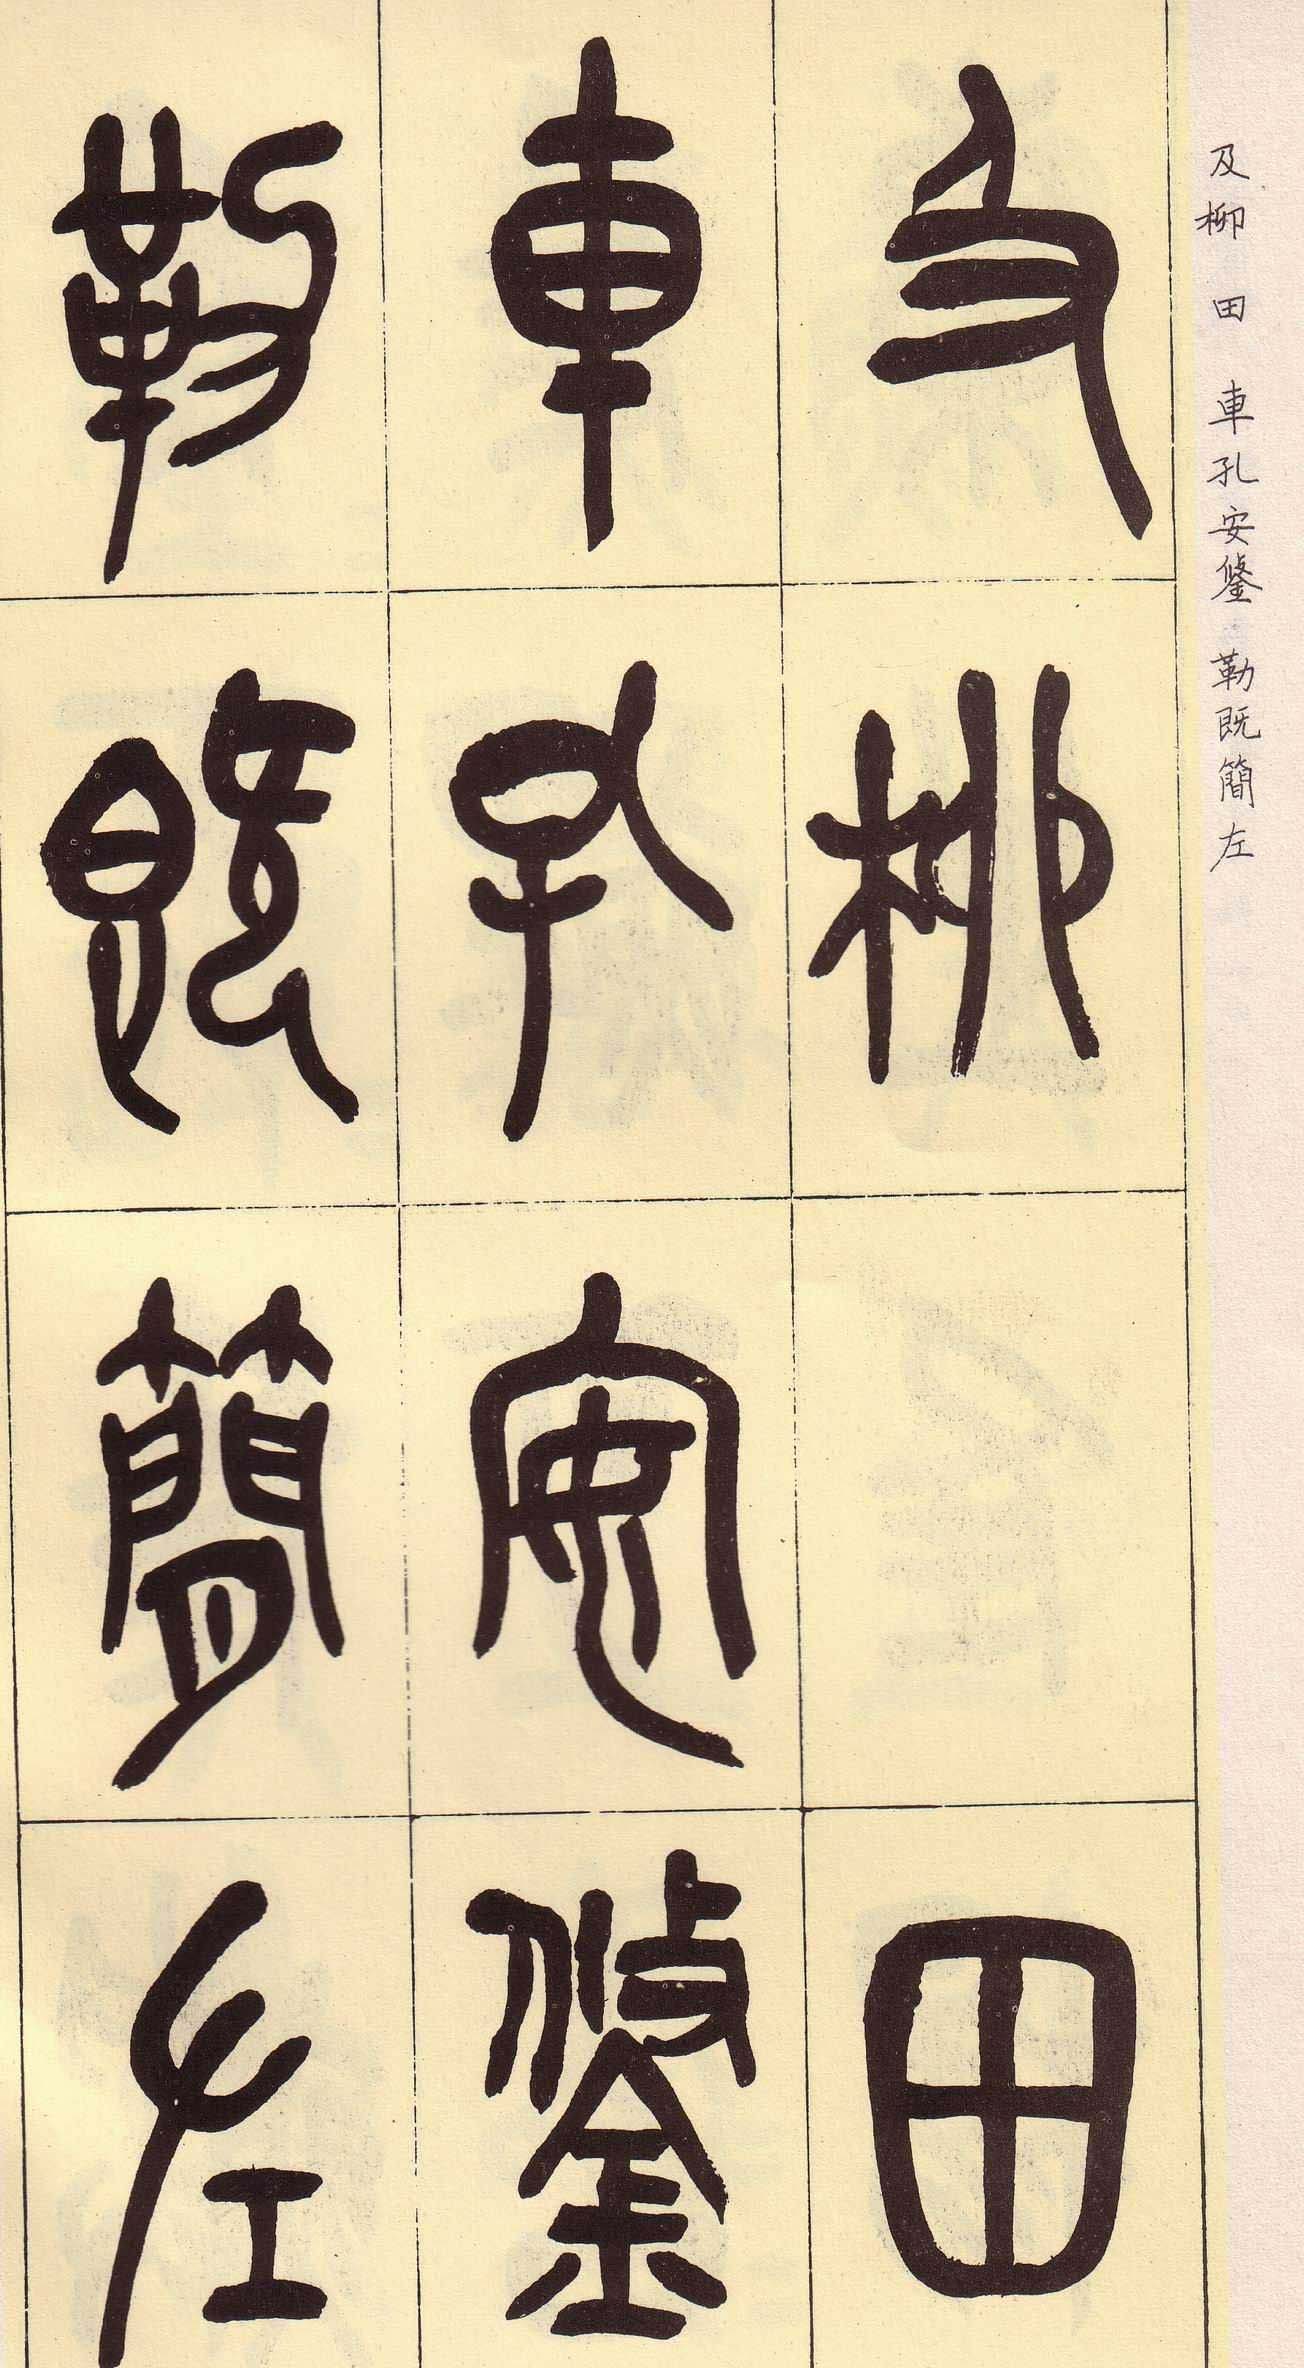 及柳 田 車孔安鋚 勒既簡左
及柳 田
車孔安鋚
勒既簡左